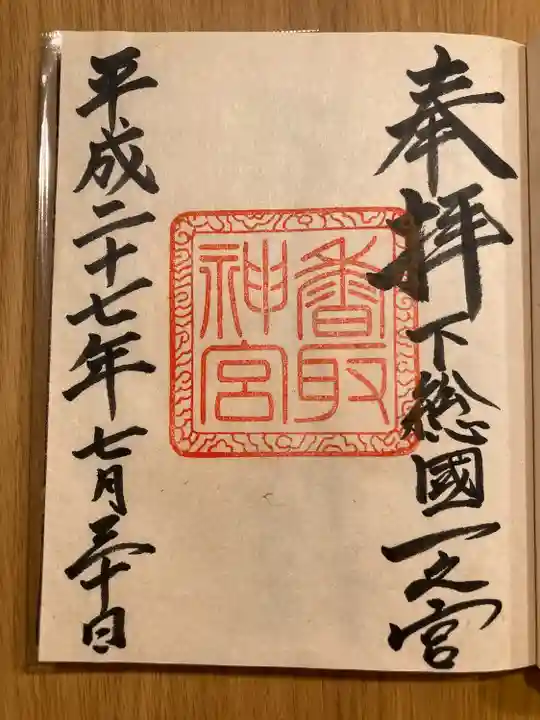 奉拝
下総國一之宮
香取
神宮
平成二十七年七月三十日